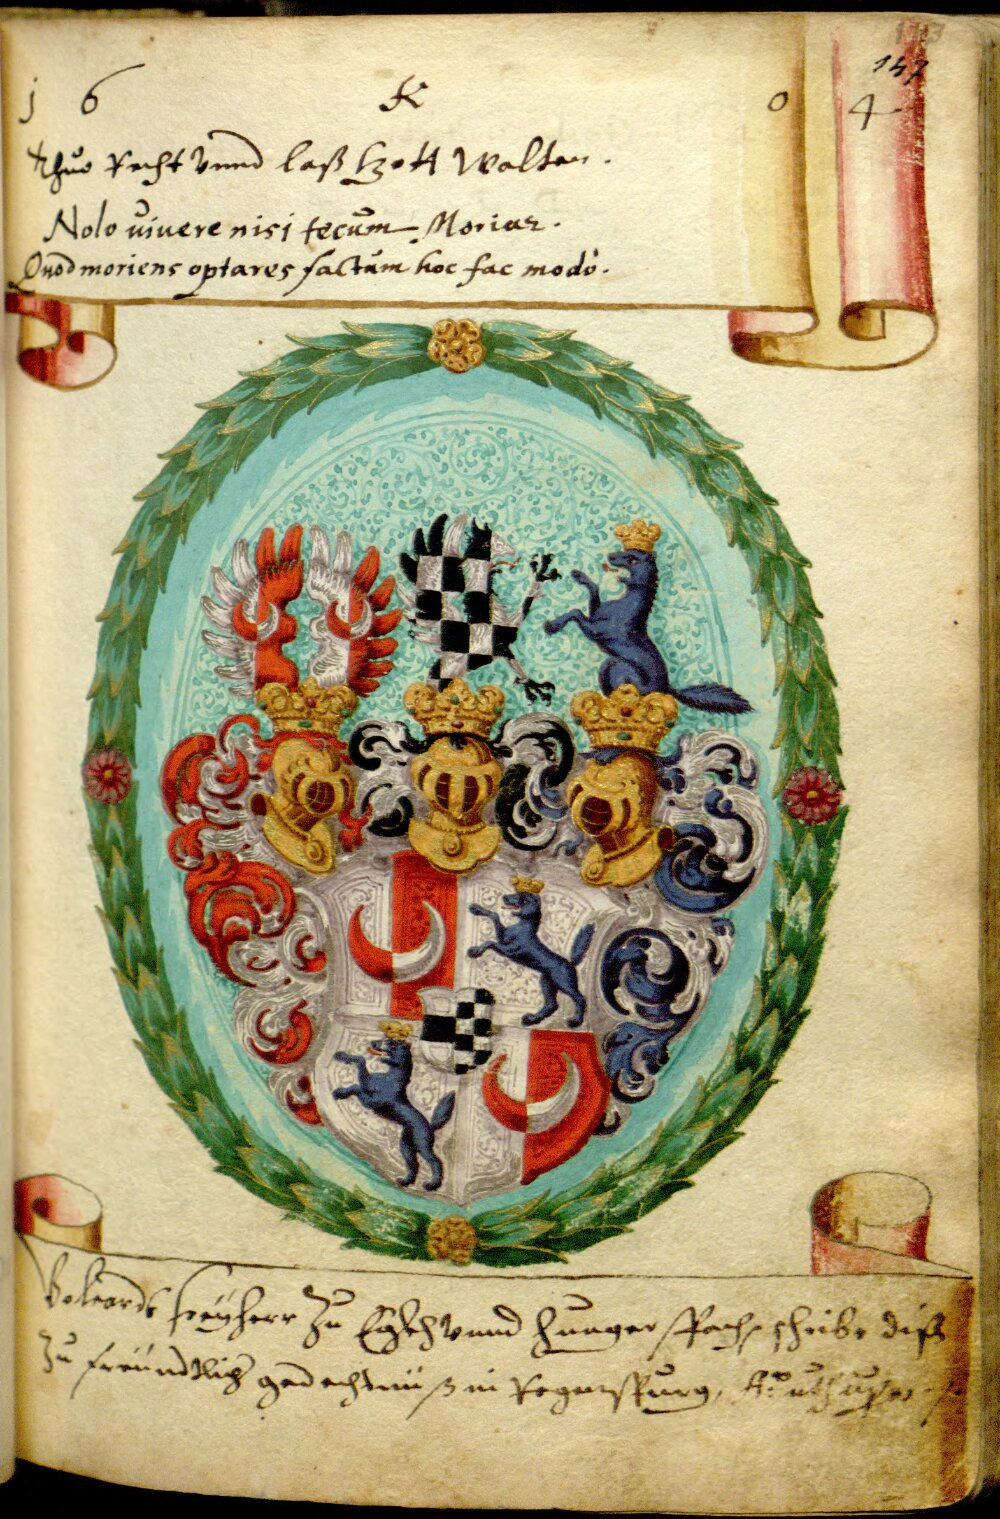 173
147
1 6 K 0 4
Thue Recht vnnd laß Gott Walten.
Nolo viuere nisi tecum Moriar.
Quod moriens optares factum hoc fac modò.
freyherr zu Egkh vnnd Hungerspach schreibs diß
zu freündtlich gedechtnüß in Regenspurg,